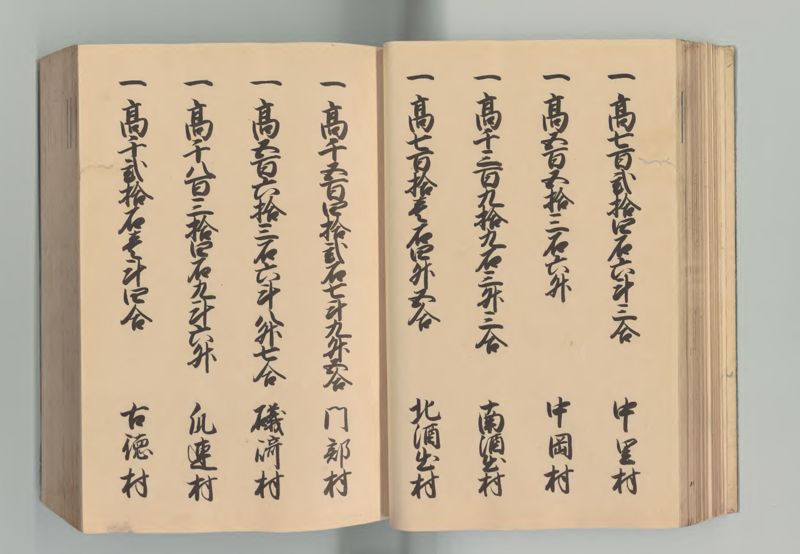 一高七百弐拾四石六斗三合 中里村
一高五百五拾三石六升 中岡村
一高千三百九拾九石三升三合 南酒出村
一高七百拾壱石四升五合 北酒出村
一高千五百四拾弐石七斗九升五合 門部村
一高五百六拾三石六斗八升七合 礒浜村
一高千八百三拾四石九斗六升 瓜連村
一高千弐拾石壱斗四合 古徳村